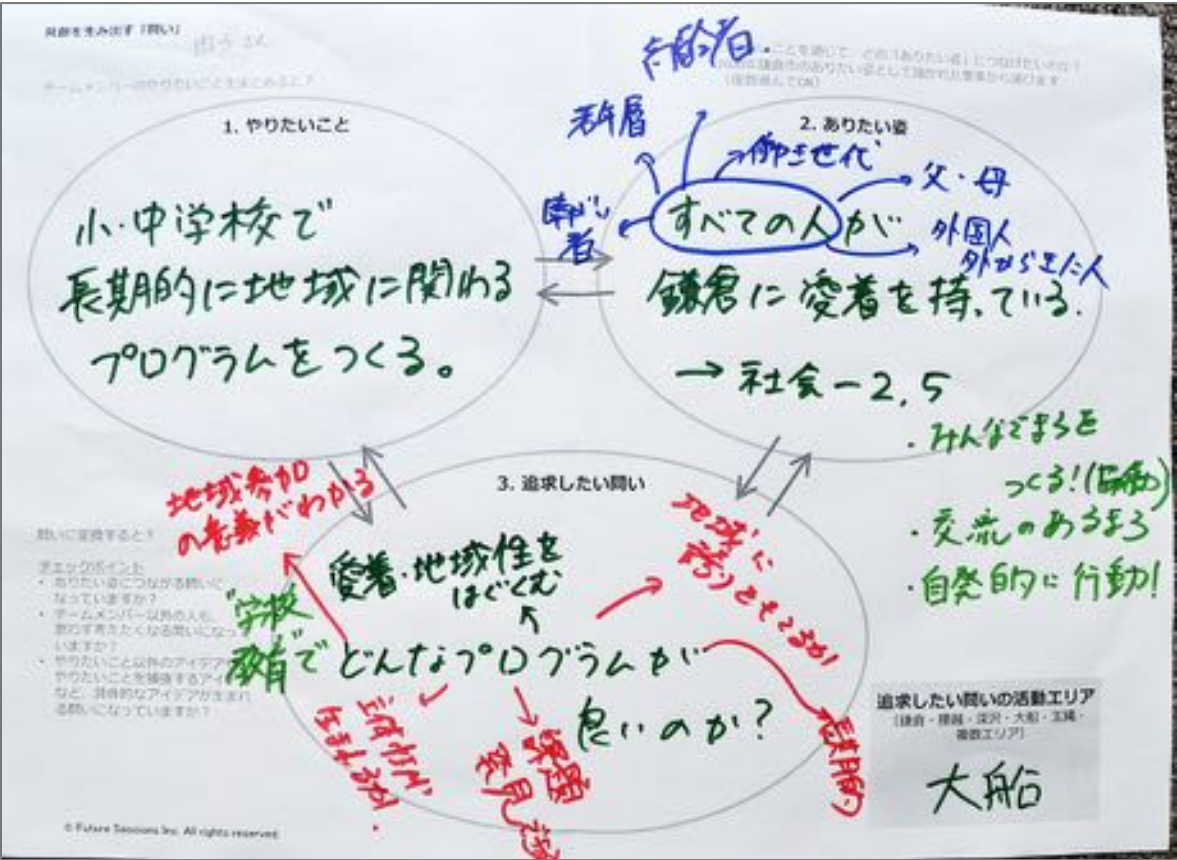 共創を生み出す「問い」
チームメンバーのやりたいことをまとめると？
1. やりたいこと
小・中学校で
長期的に地域に関わる
プログラムをつくる。
（複数選んでOK）
2. ありたい姿
高齢者
若年層
働き世代
父・母
障がい
者
外国人
外から来た人
すべての人が
鎌倉に愛着を持っている.
→ 社会-2,5
・みんなでまちを
つくる!(協働)
・交流のあるまち
・自発的に行動!
3. 追求したい問い
地域参加
の意義がわかる
愛着・地域性を
はぐくむ
地域に
誇りをもてるか!
"学校
教育"で
どんなプログラムが
良いのか?
課題
発見
長期的
問いに変換すると？
チェックポイント
・ありたい姿につながる問いに
なっていますか？
・チームメンバー以外の人も、
思わず考えたくなる問いになって
いますか？
・やりたいこと以外のアイデア
やりたいことを補強するアイ
など、具体的なアイデアが生まれ
る問いになっていますか？
追求したい問いの活動エリア
（鎌倉・腰越・深沢・大船・玉縄・
複数エリア）
大船
© Future Sessions Inc. All rights reserved.